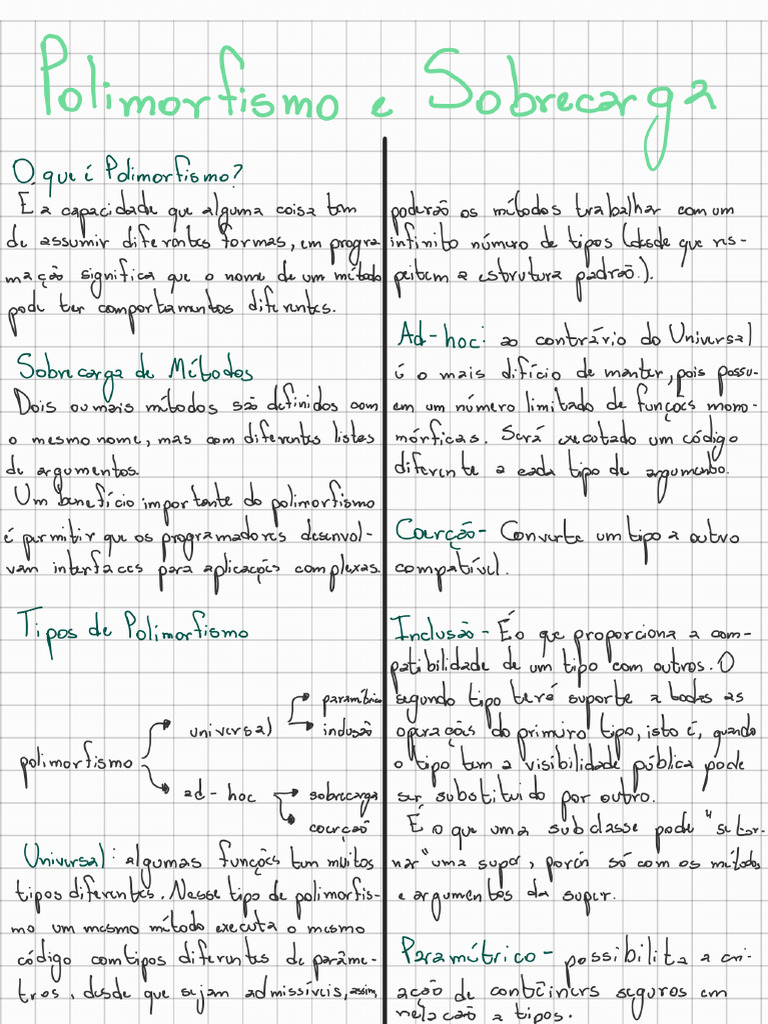 Polimorfismo e Sobrecarga
O que é Polimorfismo?
É a capacidade que alguma coisa tem
de assumir diferentes formas, em progra
mação significa que o nome de um método
pode ter comportamentos diferentes.
Sobrecarga de Métodos
Dois ou mais métodos são definidos com
o mesmo nome, mas com diferentes listas
de argumentos.
Um benefício importante do polimorfismo
é permitir que os programadores desenvol-
vam interfaces para aplicações complexas.
Tipos de Polimorfismo
polimorfismo
universal
paramétrico
inclusão
ad-hoc
sobrecarga
coerção
Universal: algumas funções tem muitos
tipos diferentes. Nesse tipo de polimorfis-
mo um mesmo método executa o mesmo
código com tipos diferentes de parâme-
tros, desde que sejam admissíveis, assim,
poderão os métodos trabalhar com um
infinito número de tipos (desde que res-
peitem a estrutura padrão.).
Ad-hoc: ao contrário do Universal
é o mais difício de manter, pois possu-
em um número limitado de funções mono-
mórficas. Será executado um código
diferente a cada tipo de argumento.
Coerção - Converte um tipo a outro
compatível.
Inclusão - É o que proporciona a com-
patibilidade de um tipo com outros. O
segundo tipo terá suporte a todas as
operações do primeiro tipo, isto é, quando
o tipo tem a visibilidade pública pode
ser substituido por outro.
É o que uma subclasse pode "se tor-
nar" uma super, porém só com os métodos
e argumentos da super.
Paramétrico - possibilita a cri-
ação de contêiners seguros em
relação a tipos.